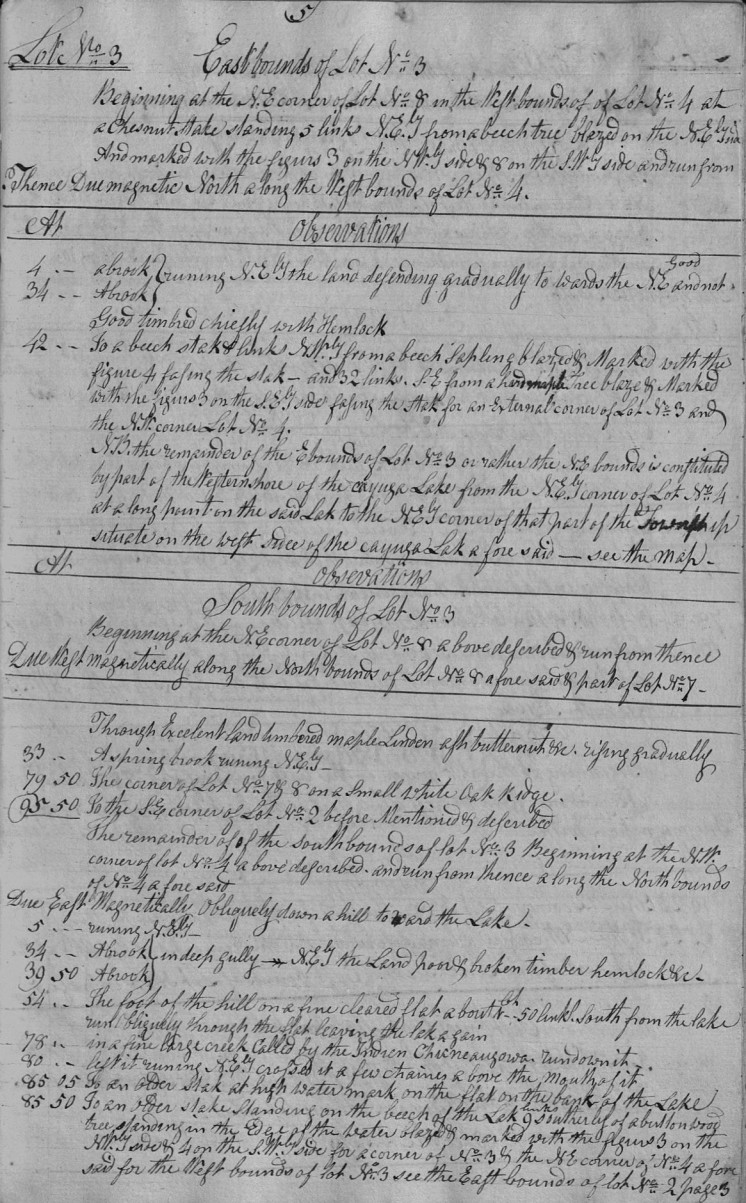 5
Lot No 3 East bounds of Lot No 3
Beginning at the N.E corner of Lot No 8 in the West bounds of of Lot No 4 at
a Chesnut stake standing 5 links N.E.ly from a beech tree blazed on the N.E.ly side
And marked with the figurs 3 on the N.W.ly side & 8 on the S.W.ly side and run from
Thence Due magnetic North along the West bounds of Lot No 4.
At Observations
4 .. a brook } runing N.E.ly the land desending gradually to wards the N.E Good and not
34 .. A brook
Good timbred chiefly with Hemlock
42 .. To a beech stak links N.W.ly from a beech Sapling blazed & Marked with the
figure 4 fasing the stak — and 32 links S.E from a hard maple tree blaze & Marked
with the figurs 3 on the S.E.ly side fasing the stak for an External corner of Lot No 3 and
the N.W. corner Lot No 4.
N.B. the remainder of the E bounds of Lot No 3 or rather the N.E bounds is constituted
by part of the Western shore of the cayuga Lake from the N.E.ly corner of Lot No 4
at a long point on the said Lak to the N.E.ly corner of that part of the Township
situate on the west side of the cayuga Lak a fore said — see the map —
At obsevations
South bounds of Lot No 3
Beginning at the N.E corner of Lot No 8 a bove described & run from thence
Due West magnetically along the North bounds of Lot No 8 a fore said & part of Lot No 7 —
Through Excelent land timbered maple Linden ash butternut &c. rising gradually
33 .. A spring brook runing N.E.ly —
79 50 The corner of Lot No 7 & 8 on a small white Oak Ridge.
95 50 To the S.E corner of Lot No 2 before Mentioned & described
The remainder of of the south bounds of lot No 3 Beginning at the N.W.
corner of lot No 4 a bove described and run from thence a long the North bounds
of No 4 a fore said
Due East Magnetically Obliquely down a hill to ward the Lake.
5 ... runing N.E.ly —
34 .. A brook } in deep gully — N.E.ly the Land poor & broken timber hemlock &c —
39 50 A brook
54 .. The foot of the hill on a fine cleared flat a bout 50 links South from the lake
run obliquely through the flat leaving the lak a gain
78 .. in a fine large creek Called by the Indien run down it
80 .. left it runing N.E.ly crossed it a few chaines a bove the mouth of it
85 05 To an older stak at high water mark on the flat on the bank of the Lake
85 50 To an older stake standing on the beech of the Lak 9 links southerly of a buttonwood
tree standing in the Edge of the water blazed & marked with the figurs 3 on the
N.W.ly side & 4 on the S.W.ly side for a corner of No 3 & the N.E corner of No 4 a fore
said for the West bounds of lot No 3 see the East bounds of lot No 2 page 3